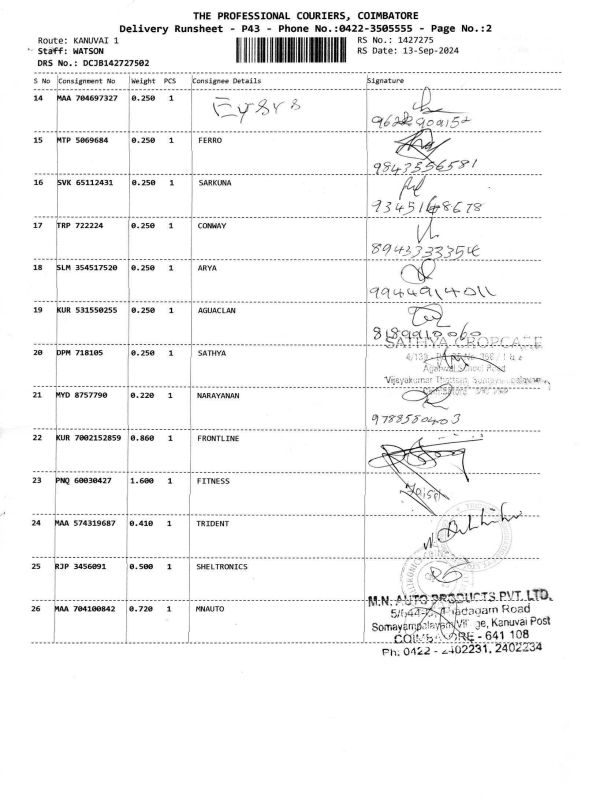 THE PROFESSIONAL COURIERS, COIMBATORE
Delivery Runsheet - P43 - Phone No.:0422-3505555 - Page No.:2
Route: KANUVAI 1 RS No.: 1427275
Staff: WATSON RS Date: 13-Sep-2024
DRS No.: DCJB142727502
S No Consignment No Weight PCS Consignee Details Signature
14 MAA 704697327 0.250 1
15 MTP 5069684 0.250 1 FERRO
9843556581
16 SVK 65112431 0.250 1 SARKUNA
9345148678
17 TRP 722224 0.250 1 CONWAY
8943333354
18 SLM 354517520 0.250 1 ARYA
9944914011
19 KUR 531550255 0.250 1 AGUACLAN
8189910060
SATHYA CROPCARE
20 DPM 718105 0.250 1 SATHYA
21 MYD 8757790 0.220 1 NARAYANAN
9788580403
22 KUR 7002152859 0.860 1 FRONTLINE
23 PNQ 60030427 1.600 1 FITNESS
24 MAA 574319687 0.410 1 TRIDENT
25 RJP 3456091 0.500 1 SHELTRONICS
26 MAA 704100842 0.720 1 MNAUTO
M.N. AUTO PRODUCTS PVT. LTD.
Road
Kanuvai Post
COIMBATORE - 641 108
Ph: 0422 - 2402231, 2402234